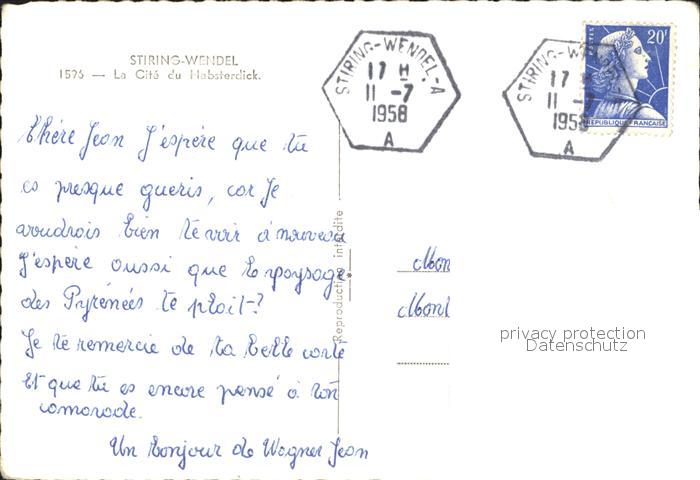 STIRING-WENDEL
1575 — La Cité du Habsterdick.
STIRING-WENDEL-A
17 H
11 -7
1958
A
STIRING-WE
17 H
11 -7
1958
A
POSTES
20F
REPUBLIQUE FRANÇAISE
Chère Jean J'espère que tu
es presque gueris, car Je
voudrois bien te voir à nouveau
J'espère aussi que le paysage
des Pyrénées te plait-?
Je te remercie de ta belle carte
Et que tu es encore pensé à ton
camarade.
Un bonjour de Wagner Jean
Reproduction interdite
Mon
Mont
privacy protection
Datenschutz